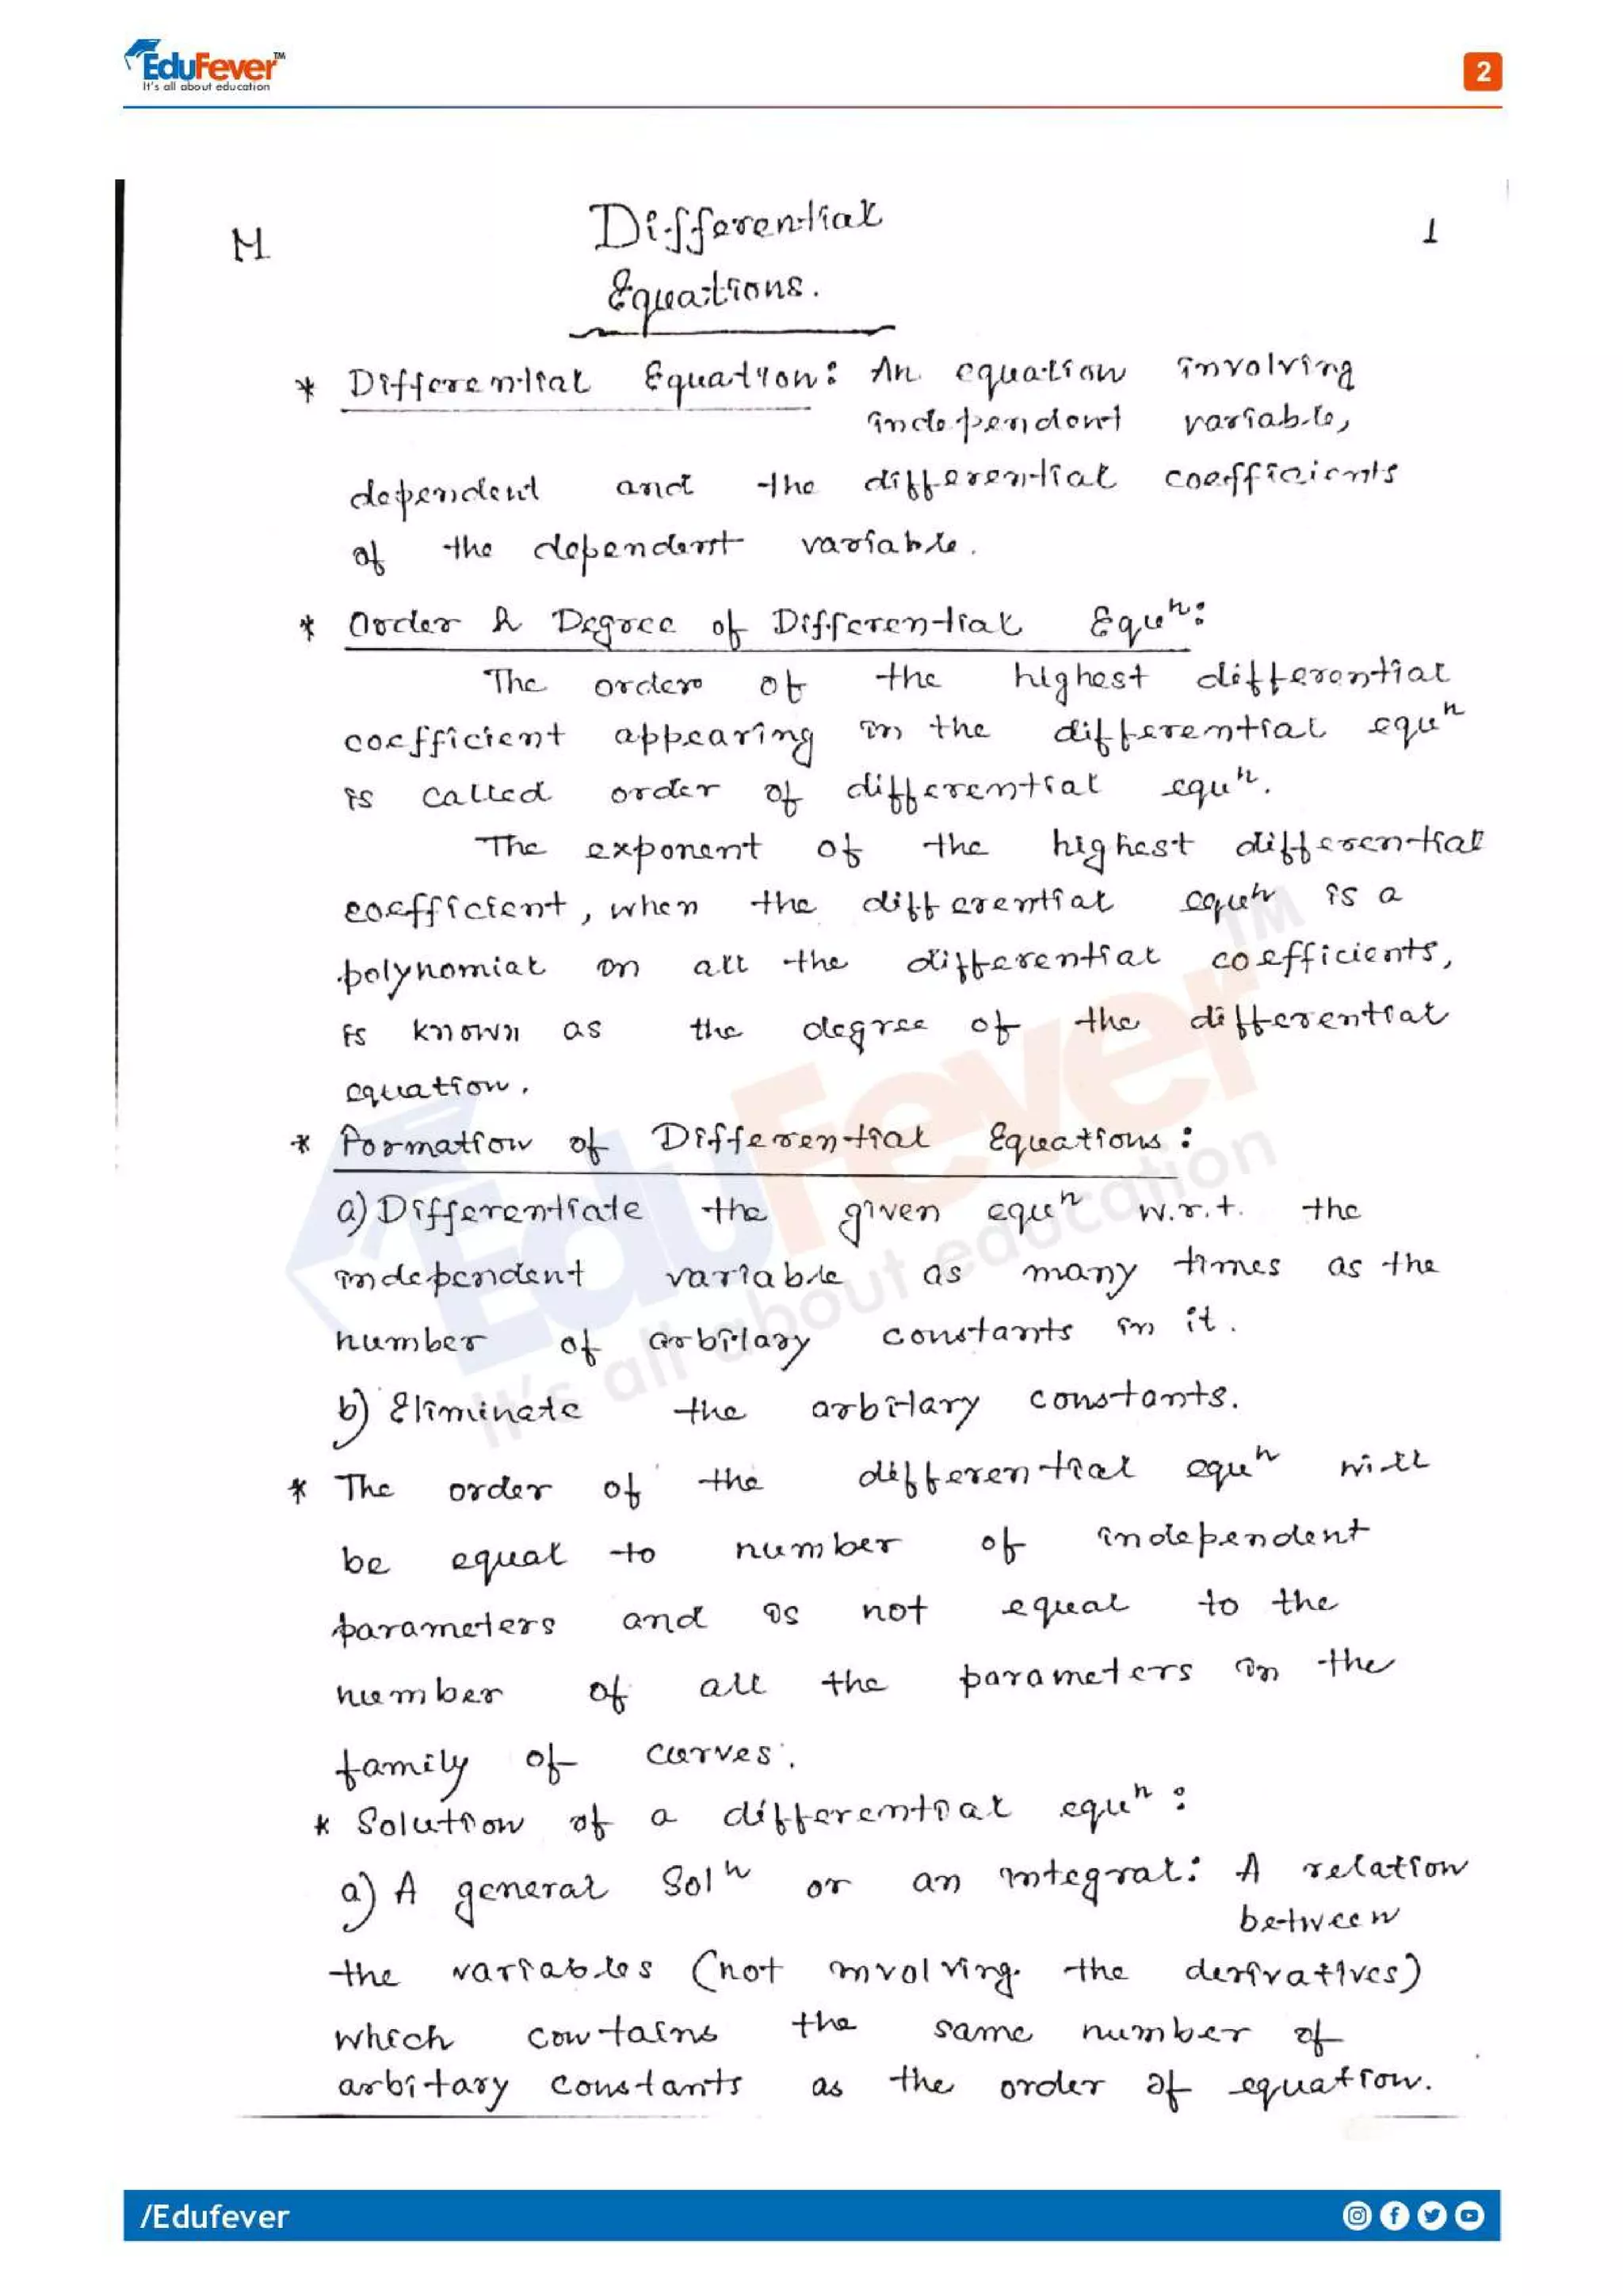 EduFever™
It's all about education
2
M
Differential
1
Equations.
* Differential Equation: An equation involving
independent variable,
dependent and the differential coefficients
of the dependent variable.
* Order & Degree of Differential Equⁿ:
The order of the highest differential
coefficient appearing in the differential equⁿ
is called order of differential equⁿ.
The exponent of the highest differential
coefficient, when the differential equⁿ is a
polynomial in all the differential coefficients,
is known as the degree of the differential
equation.
* Formation of Differential Equations:
a) Differentiate the given equⁿ w.r.t. the
independent variable as many times as the
number of arbitary constants in it.
b) Eliminate the arbitary constants.
* The order of the differential equⁿ will
be equal to number of independent
parameters and is not equal to the
number of all the parameters in the
family of curves.
* Solution of a differential equⁿ:
a) A general Solⁿ or an integral: A relation
between
the variables (not involving the derivatives)
which contains the same number of
arbitary constants as the order of equation.
EduFever™
It's all about education
/Edufever